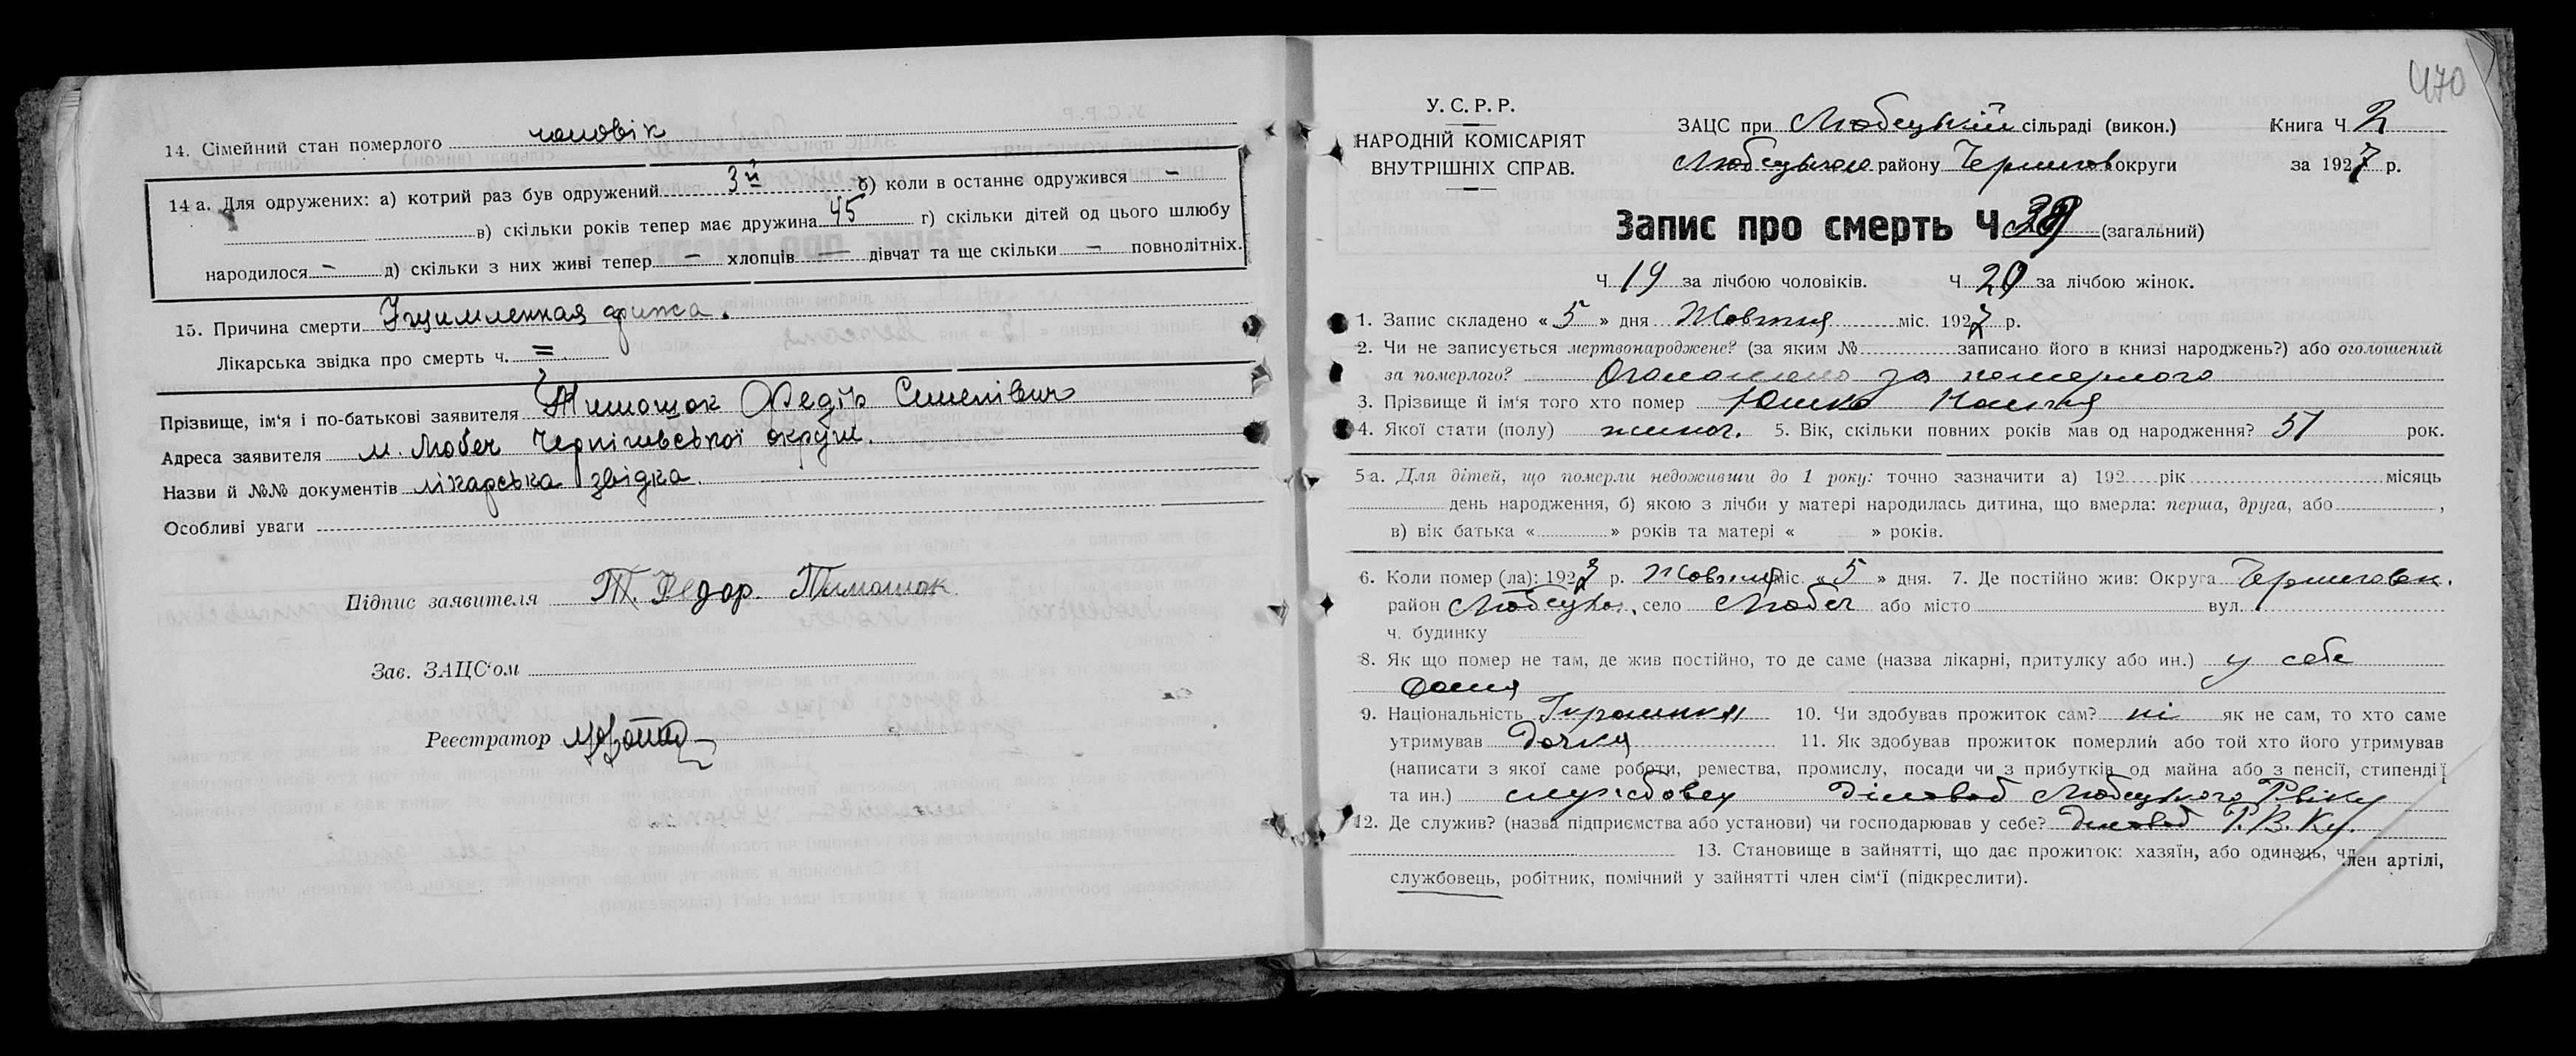 14. Сімейний стан померлого чоловік
14 а. Для одружених: а) котрий раз був одружений 3й б) коли в останнє одружився —
в) скільки років тепер має дружина 45 г) скільки дітей од цього шлюбу
народилося — д) скільки з них живі тепер — хлопців — дівчат та ще скільки — повнолітніх.
15. Причина смерти Ущимленная грижа.
Лікарська звідка про смерть ч. =
Прізвище, ім'я і по-батькові заявителя Тимошок Федір Семенівич
Адреса заявителя м. Любеч Чернігівської округи.
Назви й №№ документів лікарська звідка.
Особливі уваги
Підпис заявителя Т. Федор. Тимошок
Зав. ЗАЦС'ом
Реєстратор
470
У. С. Р. Р.
НАРОДНІЙ КОМІСАРІЯТ
ВНУТРІШНІХ СПРАВ.
ЗАЦС при Любецькій сільраді (викон.) Книга Ч 2
Любецького району Чернигов округи за 1927 р.
Запис про смерть Ч 39 (загальний)
Ч 19 за лічбою чоловіків. Ч 20 за лічбою жінок.
1. Запис складено « 5 » дня Жовтня міс. 1927 р.
2. Чи не записується мертвонароджене? (за яким № записано його в книзі народжень?) або оголошений
за померлого? Оголошено за померлого
3. Прізвище й ім'я того хто помер Юшко
4. Якої стати (полу) жиноч. 5. Вік, скільки повних років мав од народження? 51 рок.
5-а. Для дітей, що померли недоживши до 1 року: точно зазначити а) 192 рік місяць
день народження, б) якою з лічби у матері народилась дитина, що вмерла: перша, друга, або ,
в) вік батька « » років та матері « » років.
6. Коли помер (ла): 1927 р. Жовтня міс. « 5 » дня. 7. Де постійно жив: Округа Черниговск.
район Любецьк., село Любеч або місто вул.
ч. будинку
8. Як що помер не там, де жив постійно, то де саме (назва лікарні, притулку або ин.) у себе
дома
9. Національність Украинка 10. Чи здобував прожиток сам? ні як не сам, то хто саме
утримував дочка 11. Як здобував прожиток померлий або той хто його утримував
(написати з якої саме роботи, ремества, промислу, посади чи з прибутків од майна або з пенсії, стипендії
та ин.) службовец діловод Любецького Рвіку
12. Де служив? (назва підприємства або установи) чи господарював у себе? діловод Р. В. Ку.
13. Становище в зайнятті, що дає прожиток: хазяїн, або одинець, член артілі,
службовець, робітник, помічний у зайнятті член сім'ї (підкреслити).